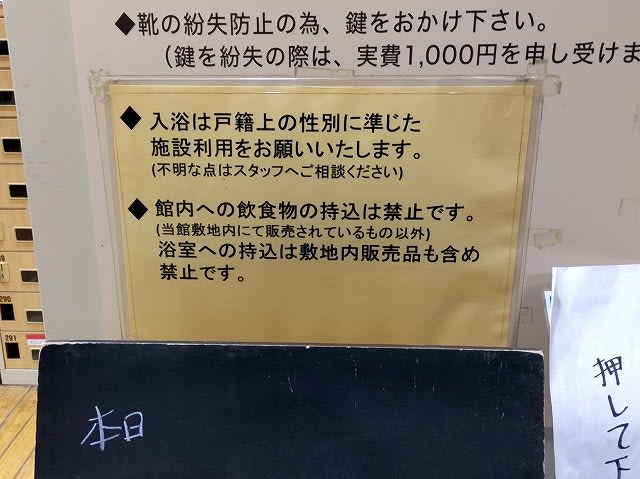 ◆靴の紛失防止の為、鍵をおかけ下さい。
(鍵を紛失の際は、実費1,000円を申し受けま
◆ 入浴は戸籍上の性別に準じた
施設利用をお願いいたします。
(不明な点はスタッフへご相談ください)
◆ 館内への飲食物の持込は禁止です。
(当館敷地内にて販売されているもの以外)
浴室への持込は敷地内販売品も含め
禁止です。
290
291
本日
押して下